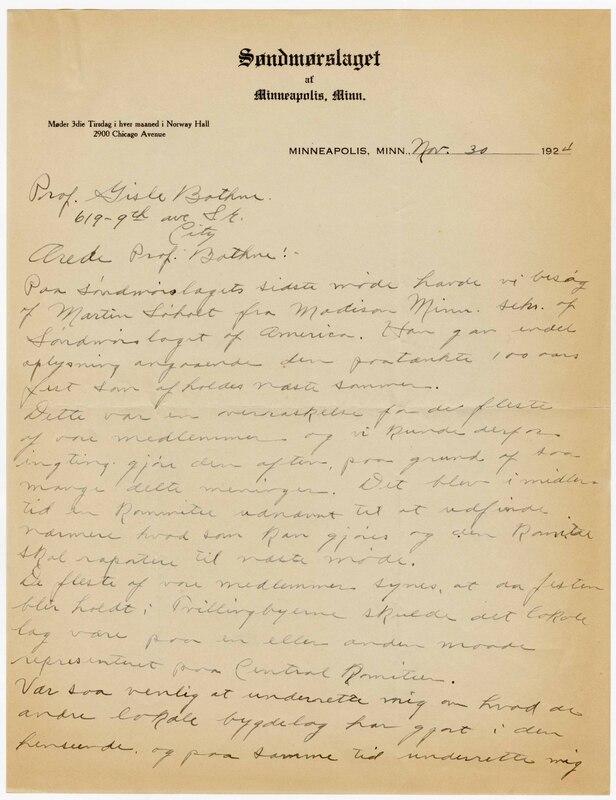 Søndmørslaget
af
Minneapolis, Minn.
Møder 3die Tirsdag i hver maaned i Norway Hall
2900 Chicago Avenue
MINNEAPOLIS, MINN., Nov. 30 1924
Prof. Gisle Bothne.
619-9th ave S.E.
City
Ærede Prof. Bothne!-
Paa Søndmørslagets sidste møde havde vi besøg
af Martin Søholt fra Madison Minn. sekr. af
Søndmørslaget of America. Han gav endel
oplysning angaaende den paatænkte 100 aars
fest som afholdes næste sommer.
Dette var en overraskelse for de fleste
af vore medlemmer og vi kunde derfor
ingting gjøre den aften, paa grund af saa
mange delte meninger. Det blev imidler-
tid en Kommitie udnævnt til at udfinde
nærmere hvad som kan gjøres og den Komitie
skal rapotere til næste møde.
De fleste af vore medlemmer synes, at da festen
blir holdt i Tvillingbyerne skulde det lokale
lag være paa en eller anden maade
representeret paa Central Komitien.
Vær saa venlig at underrette mig om hvad de
andre lokale bygdelag har gjort i den
henseende. og paa samme tid underrette mig